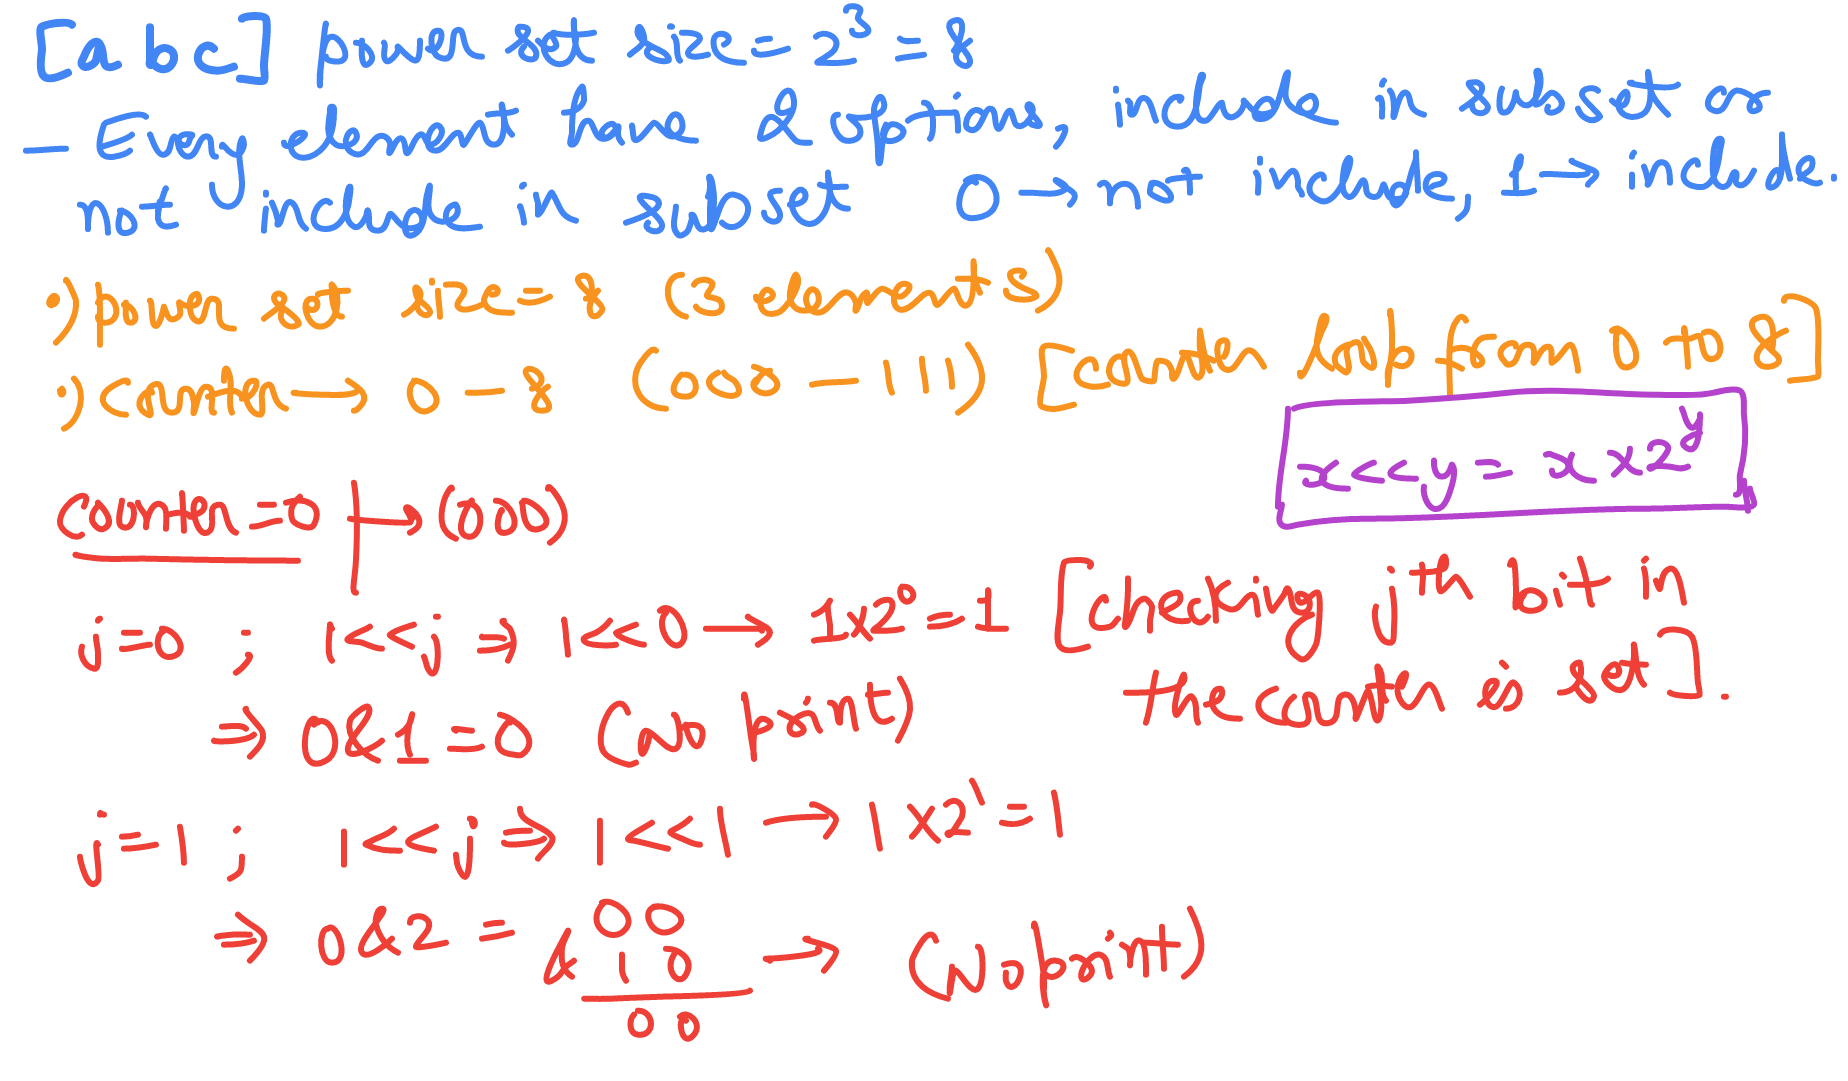 [a b c] power set size = 2³ = 8
- Every element have 2 options, include in subset or
not include in subset 0 → not include, 1 → include.
·) power set size = 8 (3 elements)
·) counter → 0 - 8 (000 - 111) [counter loop from 0 to 8]
x<<y = x x 2^y
counter = 0 | → (000)
j = 0 ; 1<<j ⇒ 1<<0 → 1x2⁰ = 1 [checking jth bit in
the counter is set].
⇒ 0&1 = 0 (No print)
j = 1 ; 1<<j ⇒ 1<<1 → 1 x2¹ = 1
⇒ 0&2 = 00
& 10 → (No print)
00